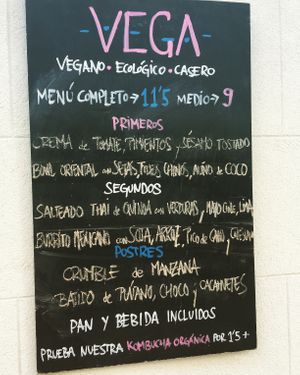 -VEGA-
VEGANO • ECOLÓGICO • CASERO
MENÚ COMPLETO → 11'5 MEDIO → 9
PRIMEROS
CREMA de TOMATE, PIMIENTOS y SÉSAMO TOSTADO
BOWL ORIENTAL con SETAS, FIDEOS CHINOS, ALIÑO de COCO
SEGUNDOS
SALTEADO THAI de QUINOA con VERDURAS, MAYO CHILE, LIMA
BURRITO MEXICANO con SOJA, ARROZ, PICO de GALLO y
POSTRES
CRUMBLE de MANZANA
BATIDO de PLÁTANO, CHOCO y CACAHUETES
PAN Y BEBIDA INCLUIDOS
PRUEBA NUESTRA KOMBUCHA ORGÁNICA POR 1'5 +